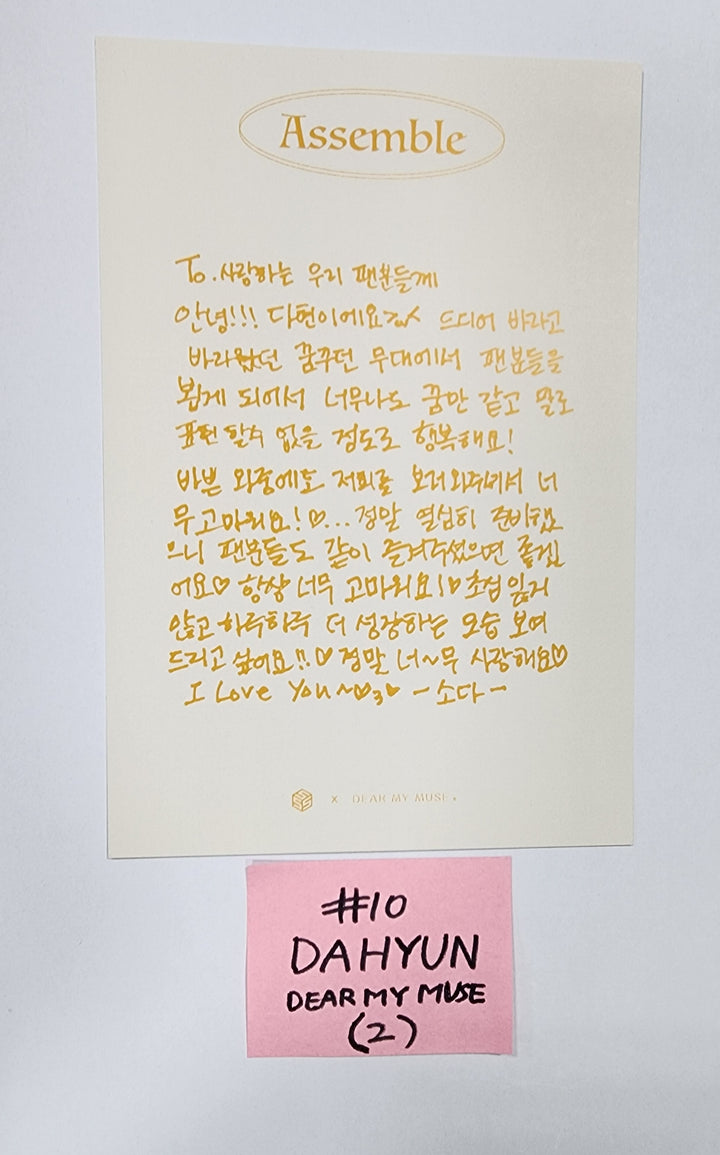 Assemble
To.사랑하는 우리 팬분들께
안녕!!! 다현이에요>ㅅ< 드디어 바라고
바라왔던 꿈꾸던 무대에서 팬분들을
뵙게 되어서 너무나도 꿈만 같고 말로
표현 할수 없을 정도로 행복해요!
바쁜 와중에도 저희를 보러와주셔서 너
무고마워요!♡...정말 열심히 준비했
으니 팬분들도 같이 즐겨주셨으면 좋겠
어요♡ 항상 너무 고마워요!♡초심 잃지
않고 하루하루 더 성장하는 모습 보여
드리고 싶어요!!♡ 정말 너~무 사랑해요♡
I Love You~♡3♥ -소다-
X DEAR MY MUSE.
#10
DAHYUN
DEAR MY MUSE
(2)